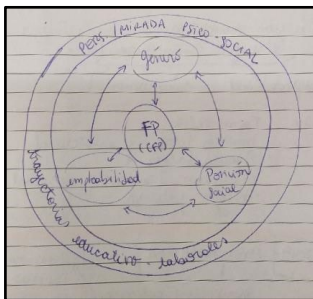 PERS / MIRADA PSICO-SOCIAL
género
FP
(CFP)
empleabilidad
Posición
social
trayectorias educativo-laborales